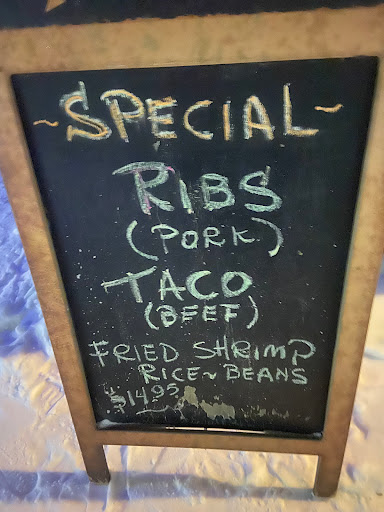 ~SPECIAL~
RIBS
(PORK)
TACO
(BEEF)
FRIED SHRIMP
RICE~BEANS
$14.95